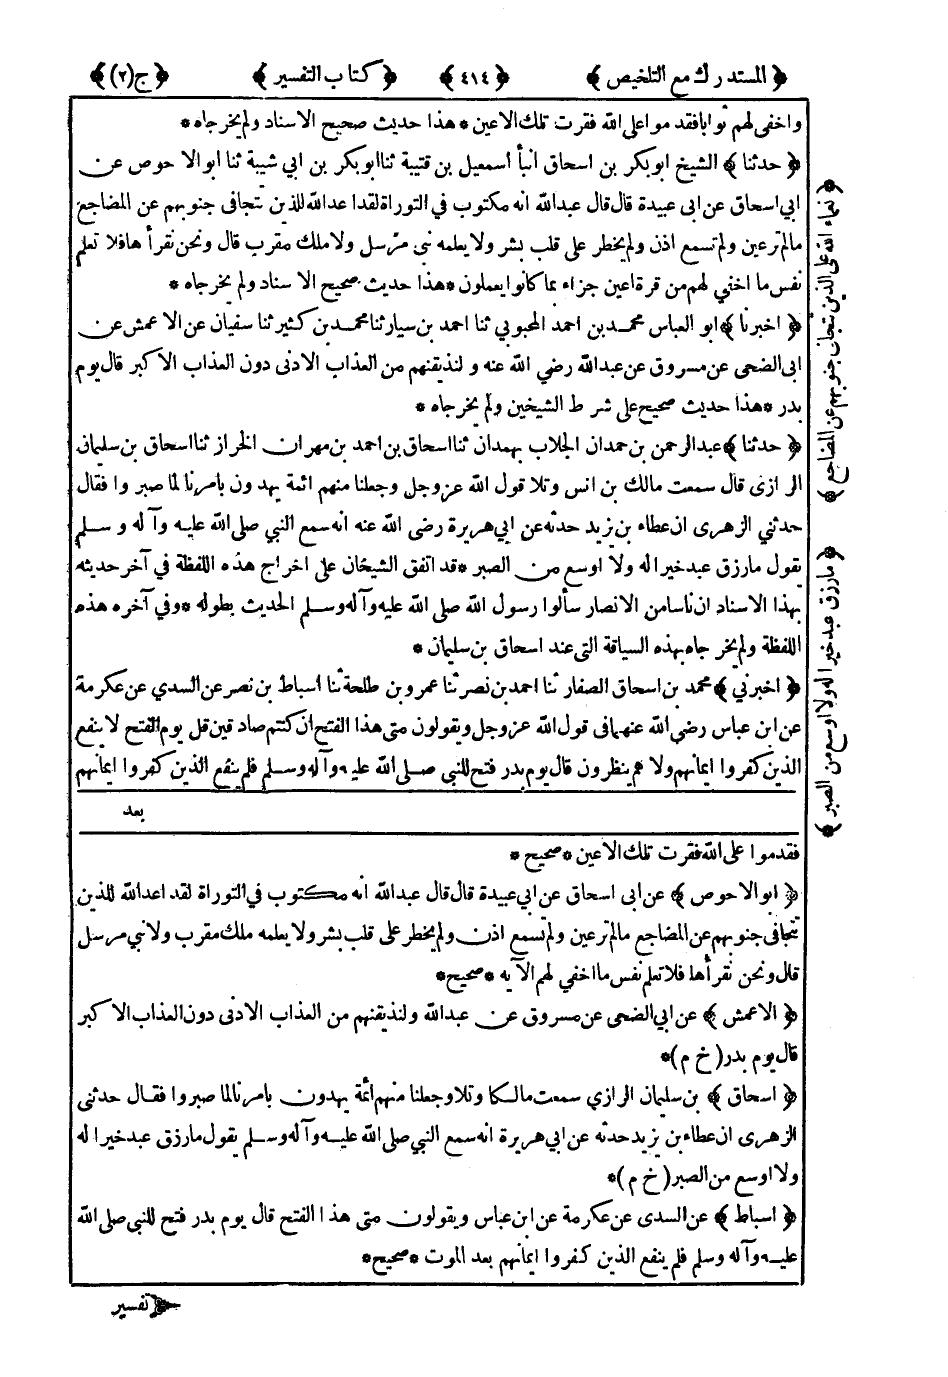 ﴿ المستدرك مع التلخيص ﴾ ﴿ ٤١٤ ﴾ ﴿ كتاب التفسير ﴾ ﴿ ج(٢) ﴾
واخفى لهم ثوابا فقدموا على الله فقرت تلك الاعين * هذا حديث صحيح الاسناد ولم يخرجاه *
﴿ حدثنا ﴾ الشيخ ابو بكر بن اسحاق انبأ اسمعيل بن قتيبة ثنا ابو بكر بن ابي شيبة ثنا ابو الاحوص عن
ابي اسحاق عن ابى عبيدة قال قال عبد الله انه مكتوب في التوراة لقد اعد الله للذين تتجافى جنوبهم عن المضاجع
ما لم تر عين ولم تسمع اذن ولم يخطر على قلب بشر ولا يعلمه نبي مرسل ولا ملك مقرب قال ونحن نقرأ ها فلا تعلم
نفس ما اخفي لهم من قرة اعين جزاء بما كانوا يعملون * هذا حديث صحيح الاسناد ولم يخرجاه *
﴿ اخبرنا ﴾ ابو العباس محمد بن احمد المحبوبي ثنا احمد بن سيار ثنا محمد بن كثير ثنا سفيان عن الاعمش عن
ابى الضحى عن مسروق عن عبد الله رضي الله عنه و لنذيقنهم من العذاب الادنى دون العذاب الاكبر قال يوم
بدر * هذا حديث صحيح على شرط الشيخين ولم يخرجاه *
﴿ حدثنا ﴾ عبد الرحمن بن حمدان الجلاب بهمدان ثنا اسحاق بن احمد بن مهران الخراز ثنا اسحاق بن سليمان
الرازى قال سمعت مالك بن انس وتلا قول الله عز وجل وجعلنا منهم ائمة يهدون بامرنا لما صبروا فقال
حدثني الزهرى ان عطاء بن يزيد حدثه عن ابي هريرة رضى الله عنه انه سمع النبي صلى الله عليه وآله وسلم
يقول ما رزق عبد خيرا له ولا اوسع من الصبر * قد اتفق الشيخان على اخراج هذه اللفظة في آخر حديثه
بهذا الاسناد ان ناسا من الانصار سألوا رسول الله صلى الله عليه وآله وسلم الحديث بطوله * وفي آخره هذه
اللفظة ولم يخرجاه بهذه السياقة التى عند اسحاق بن سليمان *
﴿ اخبرني ﴾ محمد بن اسحاق الصفار ثنا احمد بن نصر ثنا عمرو بن طلحة ثنا اسباط بن نصر عن السدي عن عكرمة
عن ابن عباس رضي الله عنهما في قول الله عز وجل ويقولون متى هذا الفتح ان كنتم صادقين قل يوم الفتح لا ينفع
الذين كفروا ايمانهم ولا هم ينظرون قال يوم بدر فتح للنبي صلى الله عليه وآله وسلم فلم ينفع الذين كفروا ايمانهم
بعد
فقدموا على الله فقرت تلك الاعين * صحيح *
﴿ ابو الاحوص ﴾ عن ابى اسحاق عن ابي عبيدة قال قال عبد الله انه مكتوب في التوراة لقد اعد الله للذين
تتجافى جنوبهم عن المضاجع ما لم تر عين ولم تسمع اذن ولم يخطر على قلب بشر ولا يعلمه ملك مقرب ولا نبي مرسل
قال ونحن نقرأها فلا تعلم نفس ما اخفي لهم الآيه * صحيح *
﴿ الاعمش ﴾ عن ابي الضحى عن مسروق عن عبد الله ولنذيقنهم من العذاب الادنى دون العذاب الاكبر
قال يوم بدر (خ م) *
﴿ اسحاق ﴾ بن سليمان الرازي سمعت مالكا وتلا وجعلنا منهم ائمة يهدون بامرنا لما صبروا فقال حدثني
الزهرى ان عطاء بن يزيد حدثه عن ابي هريرة انه سمع النبي صلى الله عليه وآله وسلم يقول ما رزق عبد خيرا له
ولا اوسع من الصبر (خ م) *
﴿ اسباط ﴾ عن السدى عن عكرمة عن ابن عباس ويقولون متى هذا الفتح قال يوم بدر فتح للنبي صلى الله
عليه وآله وسلم فلم ينفع الذين كفروا ايمانهم بعد الموت * صحيح *
تفسير
﴿ نعماء الله على الذين تتجافى جنوبهم عن المضاجع ﴾
﴿ ما رزق عبد خيرا له ولا اوسع من الصبر ﴾